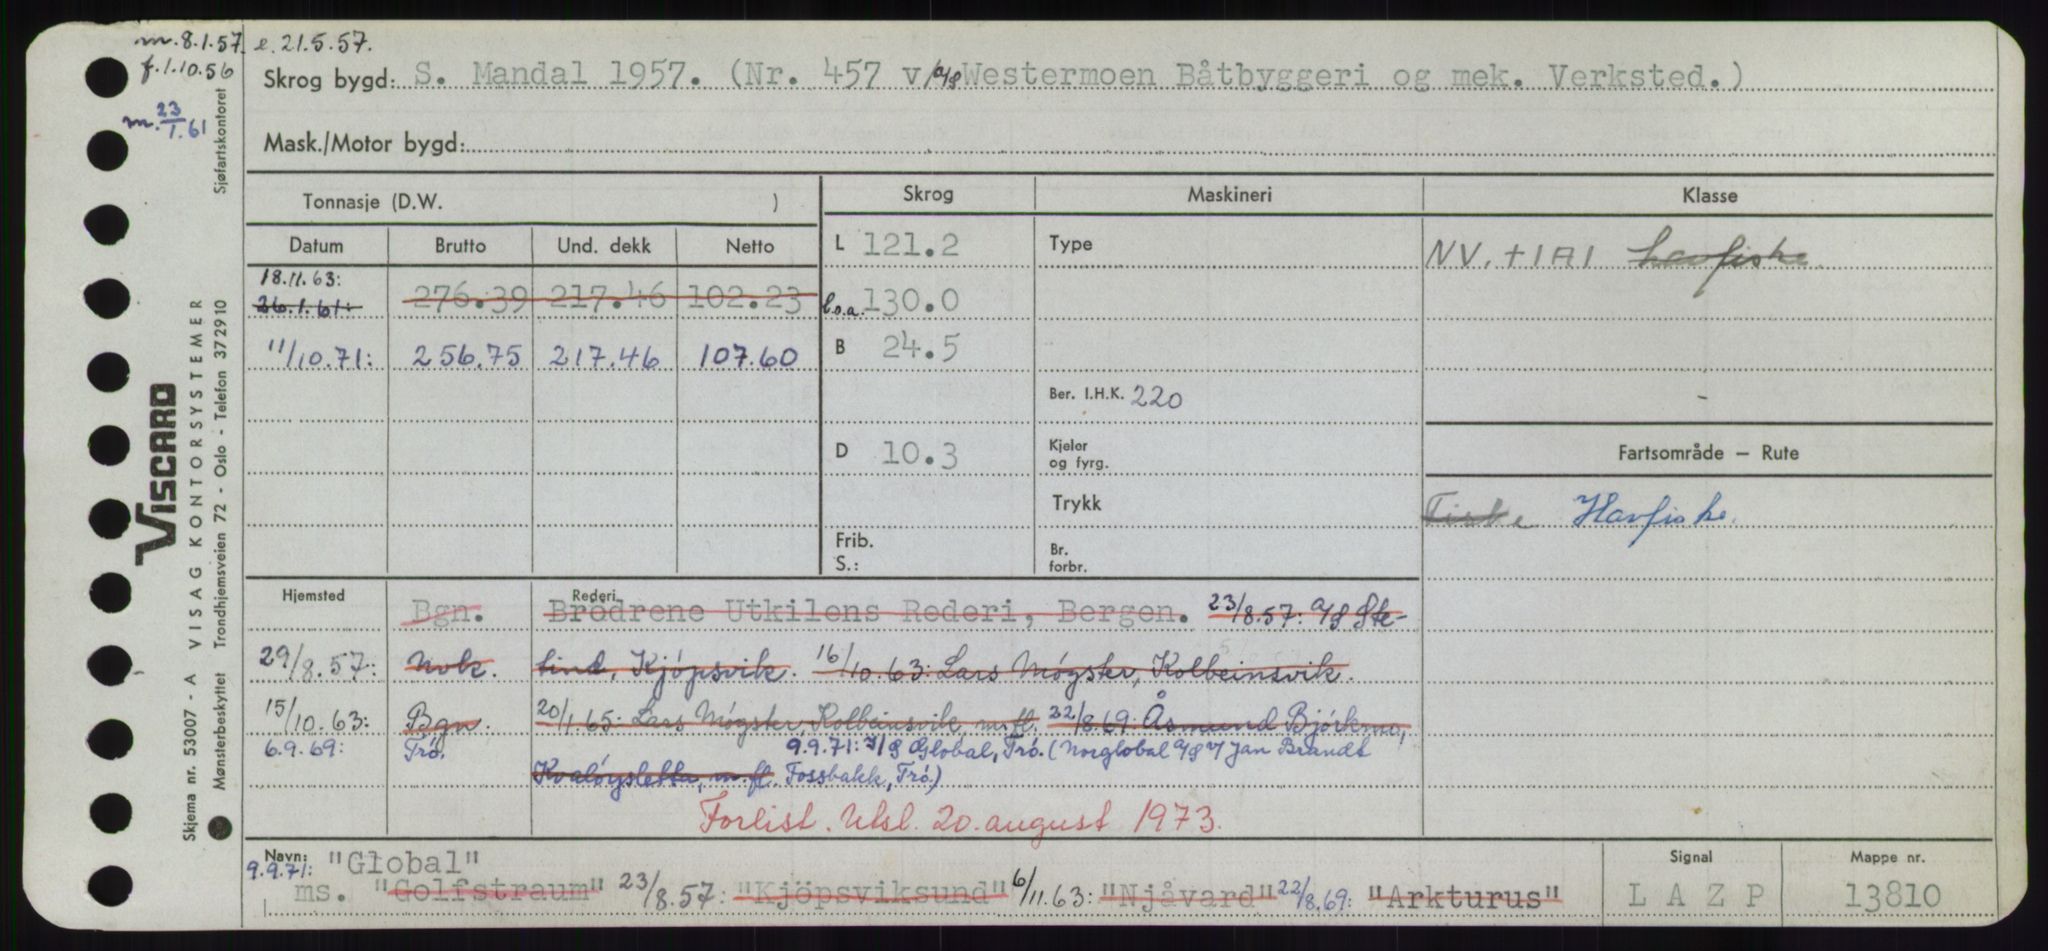 m. 8.1.57. e. 21.5.57.
f. 1.10.56
m. 23/1.61
Sjøfartskontoret
Skrog bygd: S. Mandal 1957. (Nr. 457 v/a/s Westermoen Båtbyggeri og mek. Verksted.)
Mask./Motor bygd:
Tonnasje (D.W. )
Skrog Maskineri Klasse
Datum Brutto Und. dekk Netto
L 121.2 Type NV. +1A1 havfiske
18.11.63:
26.1.61: 276.39 217.46 102.23 l.o.a. 130.0
11/10.71: 256.75 217.46 107.60 B 24.5
Ber. I.H.K. 220
D 10.3 Kjeler
og fyrg.
Fartsområde — Rute
Trykk Fiske Havfiske.
Frib.
S.:
Br.
forbr.
Hjemsted Rederi
Bgn. Brödrene Utkilens Rederi, Bergen. 23/8.57: a/s Ste-
29/8.57: Nvk. tind, Kjöpsvik. 16/10.63: Lars Mögster, Kolbeinsvik.
15/10.63: Bgn. 20/1.65: Lars Mögster, Kolbeinsvik, m.fl. 22/8.69: Åsmund Björkmo,
6.9.69: Trö. 9.9.71: I/S Global, Trö. (Norglobal a/s v/ Jan Brandt
Kvalöysletta, m.fl. Fossbakk, Trö.)
Forlist. Utsl. 20. august 1973.
Navn: Signal Mappe nr.
9.9.71: "Global"
ms. "Golfstraum" 23/8.57: "Kjöpsviksund" 6/11.63: "Njåvard" 22/8.69: "Arkturus" L A Z P 13810
VISCARD
VISAG KONTORSYSTEMER
Skjema nr. 53007 - A
Mønsterbeskyttet Trondhjemsveien 72 - Oslo - Telefon 372910